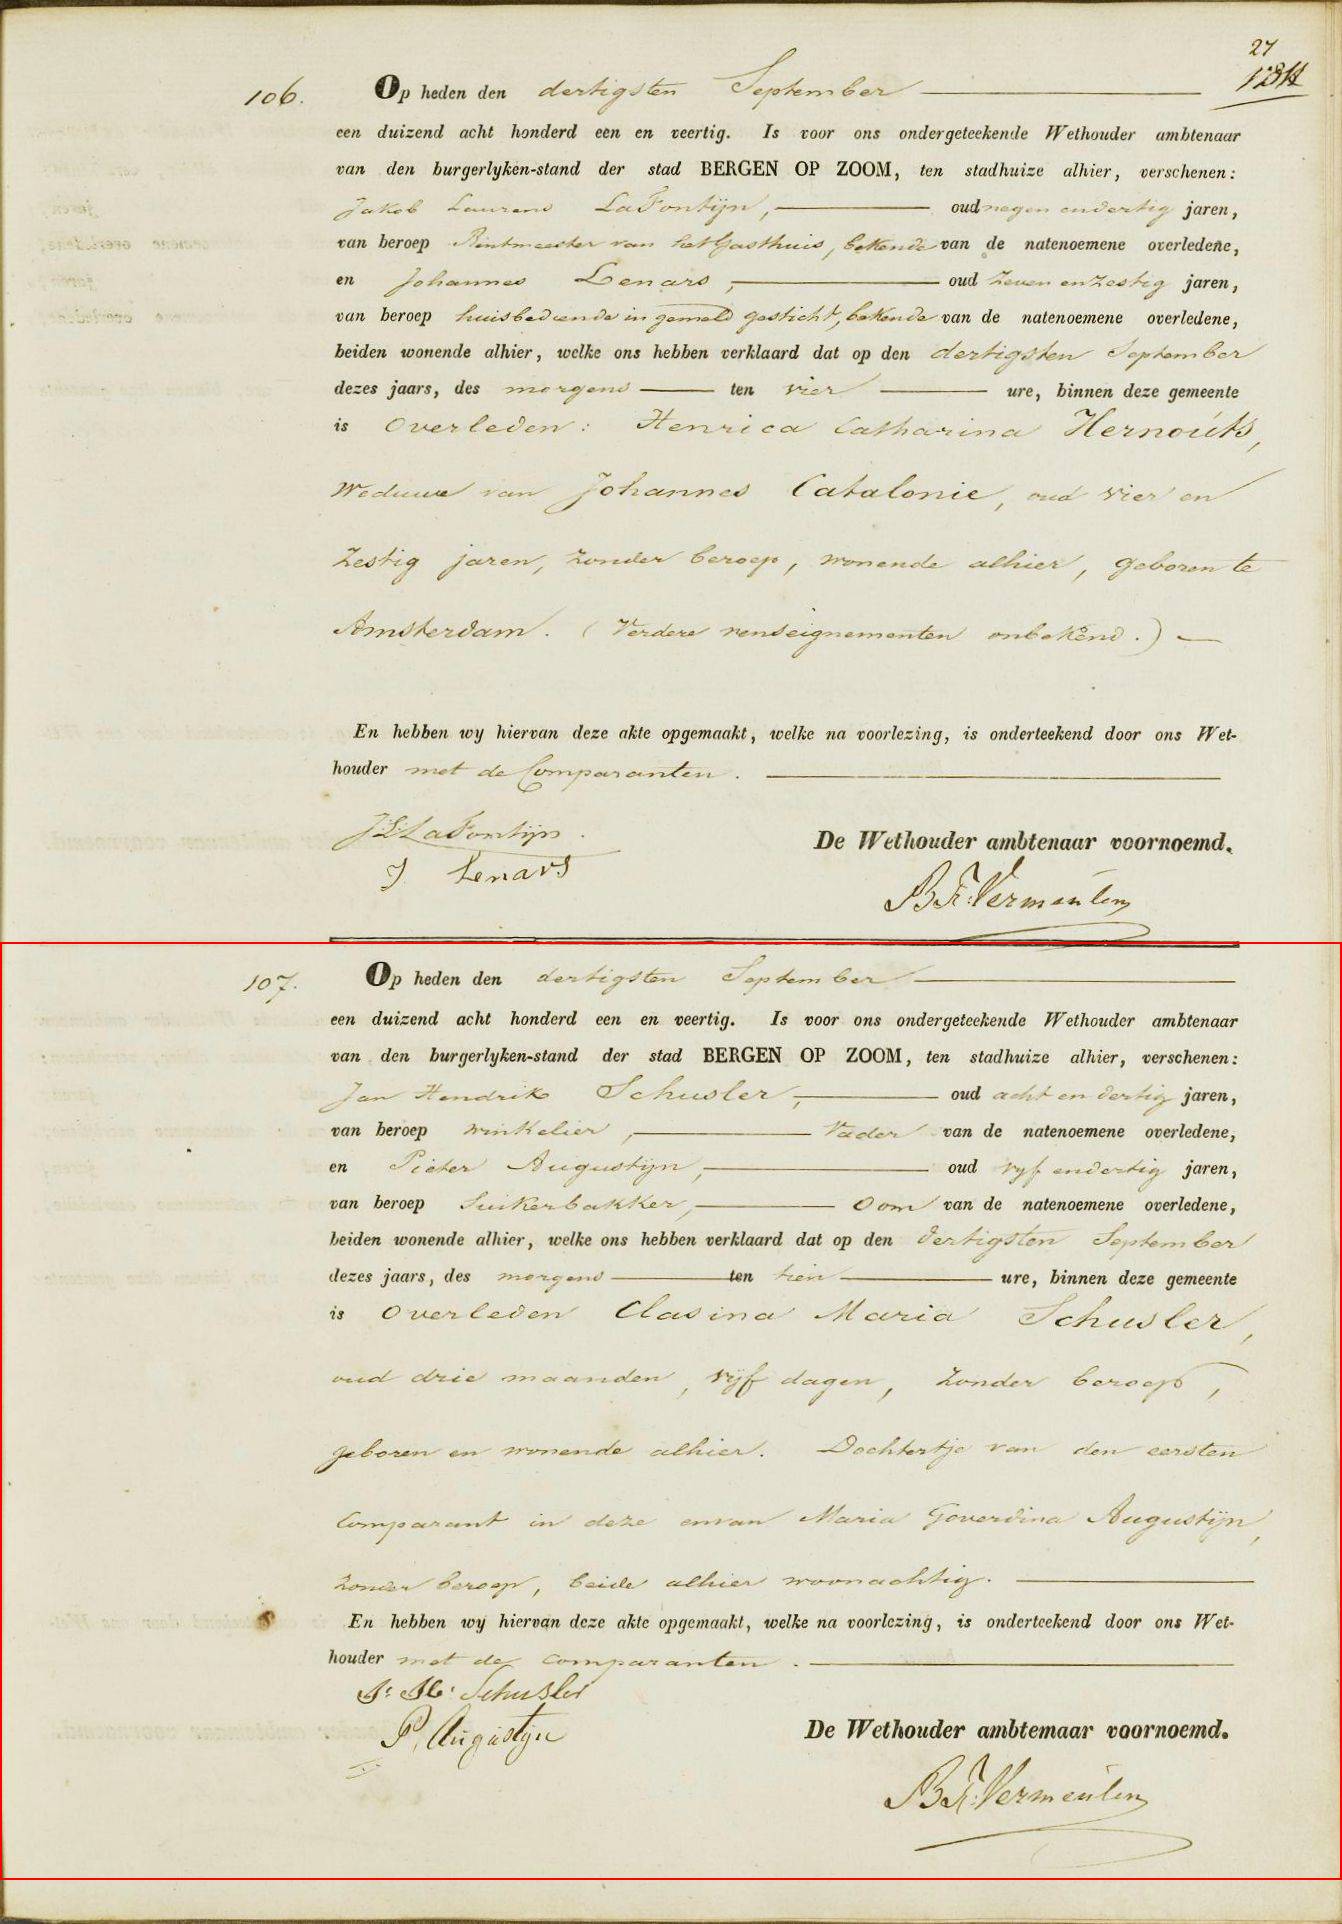 27
106. Op heden den dertigsten September
een duizend acht honderd een en veertig. Is voor ons ondergeteekende Wethouder ambtenaar
van den burgerlyken-stand der stad BERGEN OP ZOOM, ten stadhuize alhier, verschenen:
Jakob Laurens LaFontijn, oud negen en dertig jaren,
van beroep Rentmeester van het Gasthuis, bekende van de natenoemene overledene,
en Johannes Lenars, oud zeven en zestig jaren,
van beroep huisbediende in gemeld gesticht, bekende van de natenoemene overledene,
beiden wonende alhier, welke ons hebben verklaard dat op den dertigsten September
dezes jaars, des morgens ten vier ure, binnen deze gemeente
is overleden: Henrica Catharina Hernoúts,
Weduwe van Johannes Catalonie, oud vier en
zestig jaren, zonder beroep, wonende alhier, geboren te
Amsterdam. (Verdere renseignementen onbekend.)
En hebben wy hiervan deze akte opgemaakt, welke na voorlezing, is onderteekend door ons Wet-
houder met de Comparanten.
JLLaFontijn.
J Lenars
De Wethouder ambtenaar voornoemd.
B.F. Vermeulen
107. Op heden den dertigsten September
een duizend acht honderd een en veertig. Is voor ons ondergeteekende Wethouder ambtenaar
van den burgerlyken-stand der stad BERGEN OP ZOOM, ten stadhuize alhier, verschenen:
Jan Hendrik Schusler, oud acht en dertig jaren,
van beroep winkelier, Vader van de natenoemene overledene,
en Pieter Augustijn, oud vyf en dertig jaren,
van beroep Suikerbakker, Oom van de natenoemene overledene,
beiden wonende alhier, welke ons hebben verklaard dat op den dertigsten September
dezes jaars, des morgens ten tien ure, binnen deze gemeente
is overleden Clasina Maria Schusler,
oud drie maanden, vijf dagen, zonder beroep,
geboren en wonende alhier. Dochtertje van den eersten
Comparant in deze en van Maria Goverdina Augustijn,
zonder beroep, beide alhier woonachtig.
En hebben wy hiervan deze akte opgemaakt, welke na voorlezing, is onderteekend door ons Wet-
houder met de comparanten.
J: H: Schusler
P. Augustijn
De Wethouder ambtemaar voornoemd.
B.F. Vermeulen